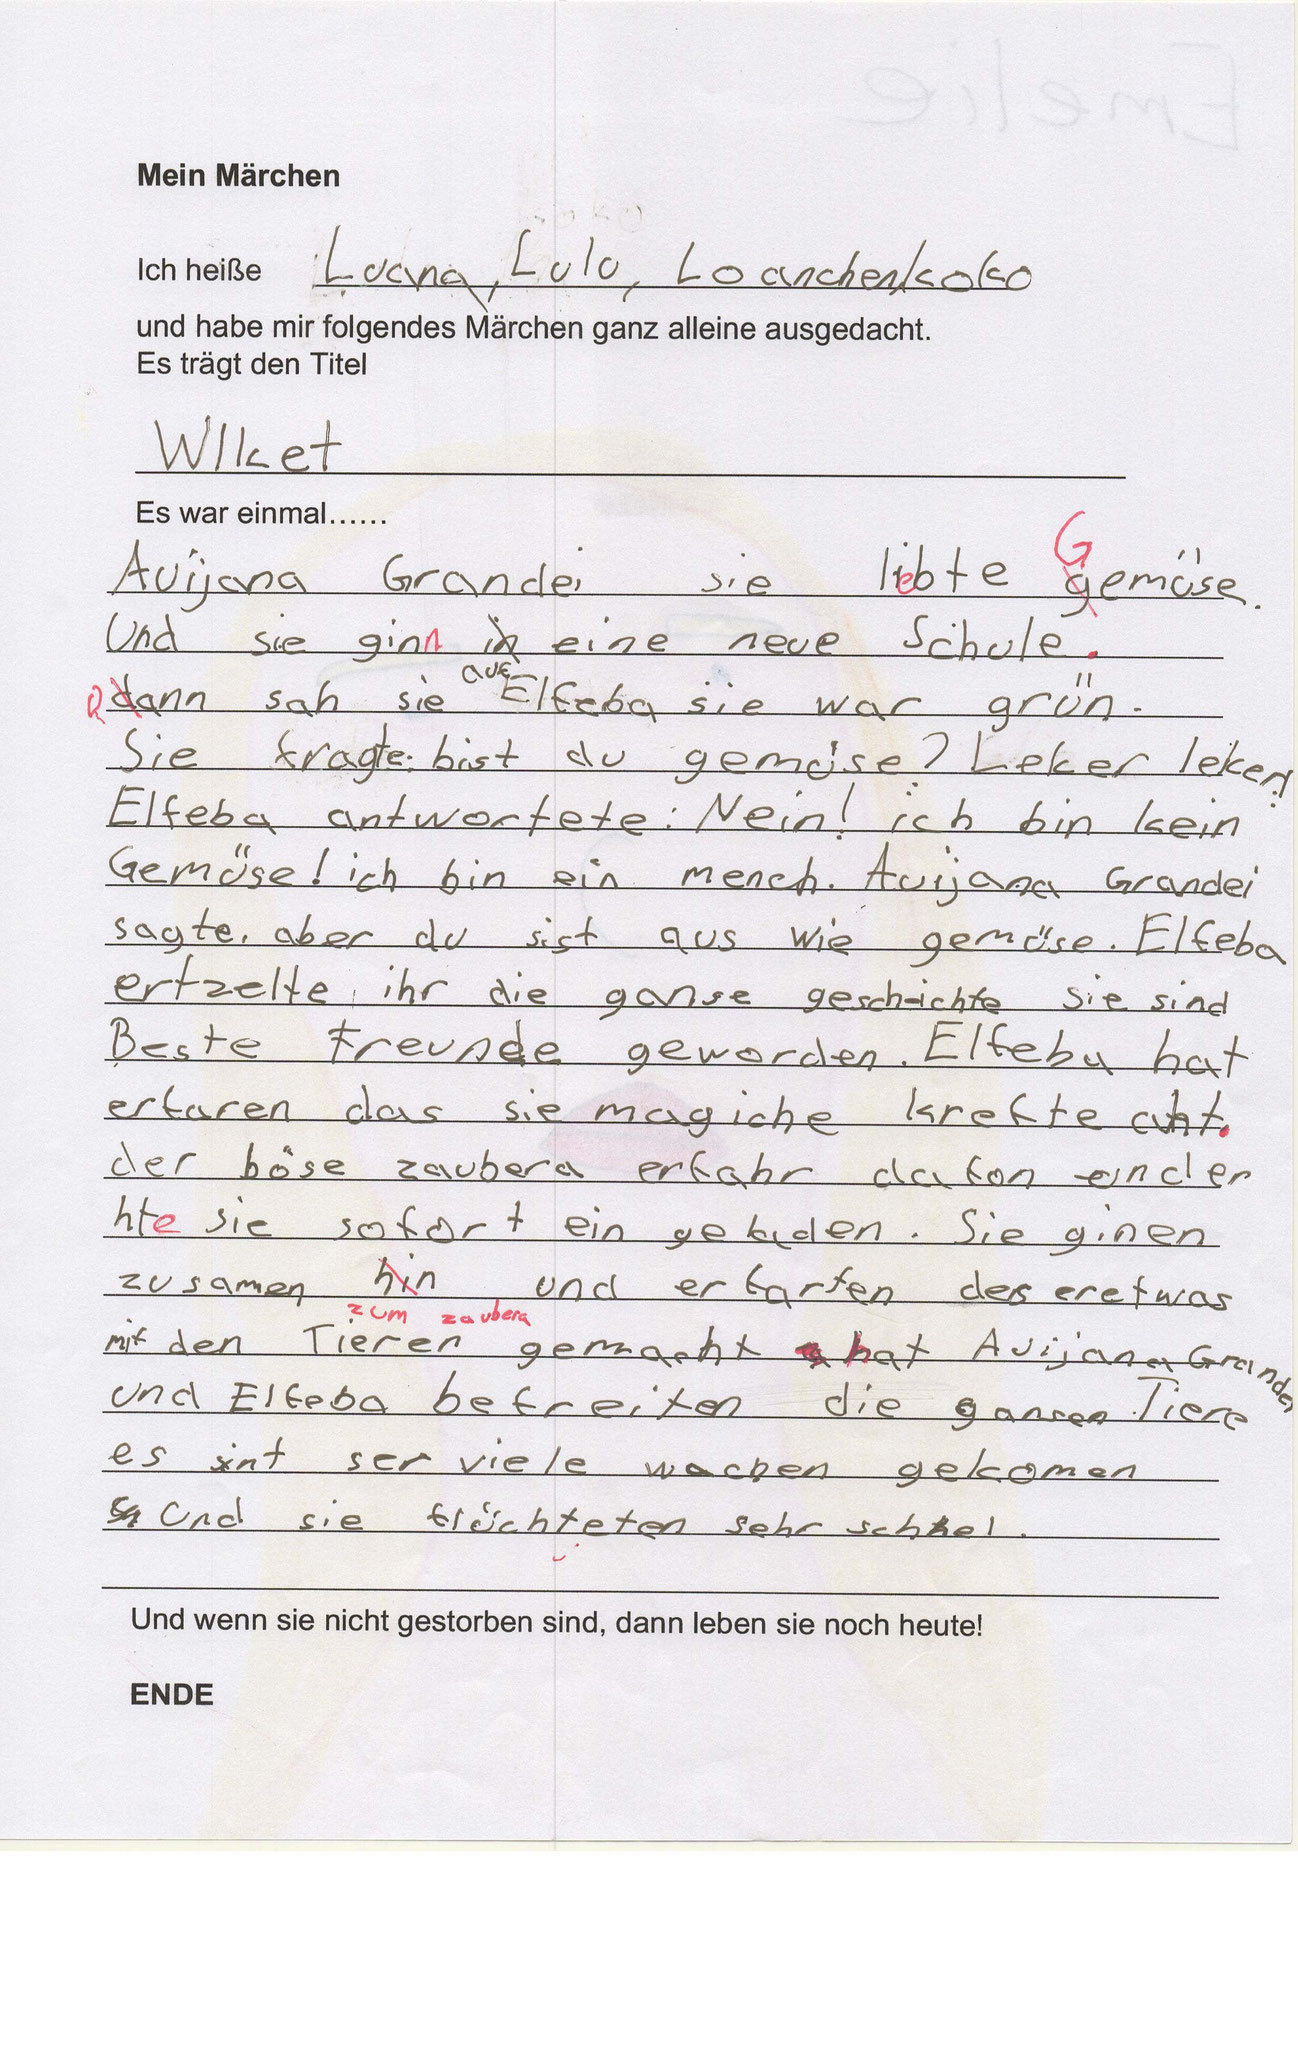 Emelie
Mein Märchen
Ich heiße Luana, Lulu, Loanchenkoko
und habe mir folgendes Märchen ganz alleine ausgedacht.
Es trägt den Titel
WIket
Es war einmal......
Auijana Grandei sie liebte Gemüse.
Und sie ginn eine neue Schule.
Dann sah sie auf Elfeba sie war grün.
Sie fragte: bist du gemüse? Leker leker!
Elfeba antwortete: Nein! ich bin kein
Gemüse! ich bin ein mench. Auijana Grandei
sagte. aber du sist aus wie gemüse. Elfeba
ertzelte ihr die ganse geschichte sie sind
Beste freunde geworden. Elfeba hat
erfaren das sie magiche krefte
der böse zaubera erfahr dafon
hte sie sofort ein geladen. Sie ginen
zusamen und erfarten des eretwas
zum zaubera
mit den Tieren gemacht hat Auijana Grandei
und Elfeba befreiten die gansen Tiere
es sint ser viele wachen gekomen
Und sie flüchteten sehr schnel.
Und wenn sie nicht gestorben sind, dann leben sie noch heute!
ENDE